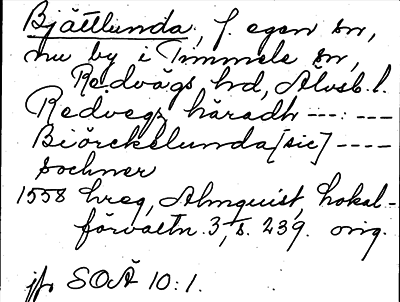 Bjättlunda, f. egen sn,
nu by i Timmele sn,
Redvägs hd, Älvsb. l.
Redvegs häradh --- : ---
Biörckelunda [sic] ----
sochner
1558 hreg, Almquist, Lokal-
förvaltn. 3, s. 239. orig.
jfr SOÄ 10:1.